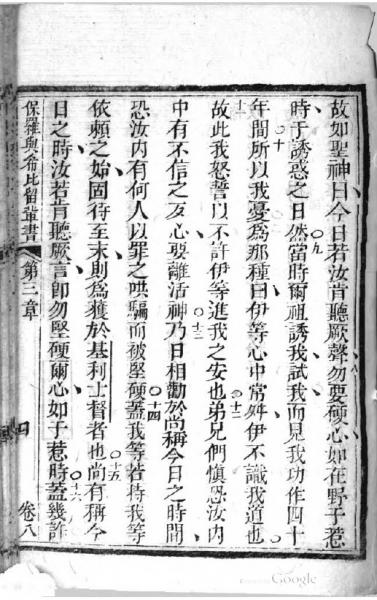 故如聖神曰今日若汝肯聽厥聲勿要硬心如在野子惹
時于誘惑之日然當時爾祖誘我試我而見我功作四十
年間所以我憂為那種曰伊等心中常舛伊不識我道也
故此我怒誓以不許伊等進我之安也弟兄們慎恐汝內
中有不信之歹心要離活神乃日相勸於尚稱今日之時間
恐汝內有何人以罪之哄騙而被堅硬蓋我等若持我等
依賴之始固待至末則為獲於基利士督者也尚有稱今
日之時汝若肯聽厥言即勿堅硬爾心如于惹時蓋幾許
保羅與希比留輩書 第三章 四 卷八
Google